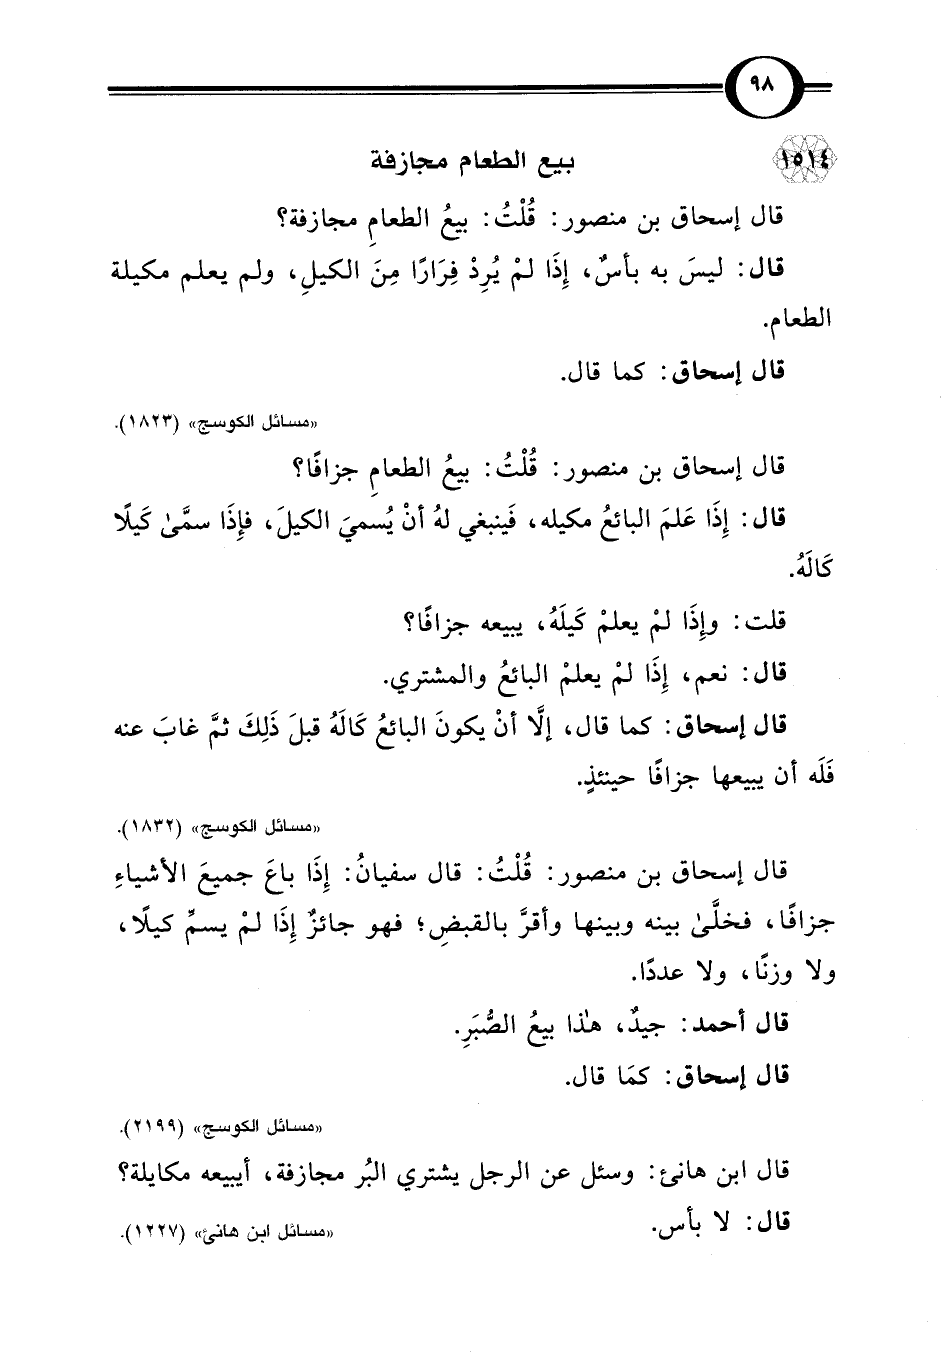 ٩٨
١٥١٤ بيع الطعام مجازفة
قال إسحاق بن منصور: قُلْتُ: بيعُ الطعامِ مجازفة؟
قال: ليسَ به بأسٌ، إِذَا لمْ يُرِدْ فِرَارًا مِنَ الكيلِ، ولم يعلم مكيلة
الطعام.
قال إسحاق: كما قال.
«مسائل الكوسج» (١٨٢٣).
قال إسحاق بن منصور: قُلْتُ: بيعُ الطعامِ جزافًا؟
قال: إِذَا عَلمَ البائعُ مكيله، فَينبغي لهُ أنْ يُسميَ الكيلَ، فإِذَا سمَّىٰ كَيلًا
كَالَهُ.
قلت: وإِذَا لمْ يعلمْ كَيلَهُ، يبيعه جزافًا؟
قال: نعم، إِذَا لمْ يعلمْ البائعُ والمشتري.
قال إسحاق: كما قال، إلَّا أنْ يكونَ البائعُ كَالَهُ قبلَ ذَلِكَ ثمَّ غابَ عنه
فَلَه أن يبيعها جزافًا حينئذٍ.
«مسائل الكوسج» (١٨٣٢).
قال إسحاق بن منصور: قُلْتُ: قال سفيانُ: إِذَا باعَ جميعَ الأشياءِ
جزافًا، فخلَّىٰ بينه وبينها وأقرَّ بالقبضِ؛ فهو جائزٌ إِذَا لمْ يسمِّ كيلًا،
ولا وزنًا، ولا عددًا.
قال أحمد: جيدٌ، هٰذا بيعُ الصُّبَرِ.
قال إسحاق: كمَا قال.
«مسائل الكوسج» (٢١٩٩).
قال ابن هانئ: وسئل عن الرجل يشتري البُر مجازفة، أيبيعه مكايلة؟
قال: لا بأس. «مسائل ابن هانئ» (١٢٢٧).